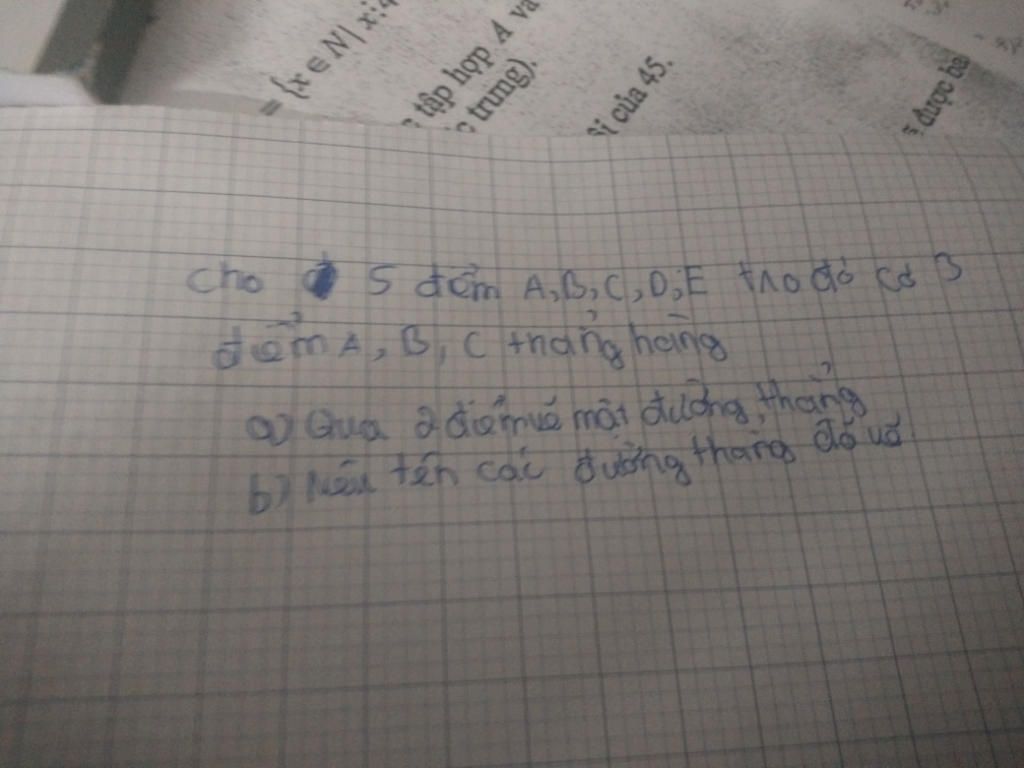 = {x ∈ N | x ⋮ 4
tập hợp A và
trung).
của 45.
được
Cho 5 điểm A, B, C, D, E tro đó có 3
điểm A, B, C thẳng hàng
a) Qua 2 điểm vẽ một đường thẳng
b) Nêu tên các đường thẳng đã vẽ